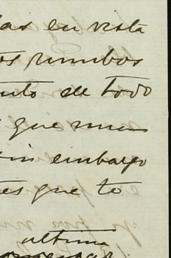 las en vista
os rumbos
nto de todo
que mu
sin embargo
es que to
ultima